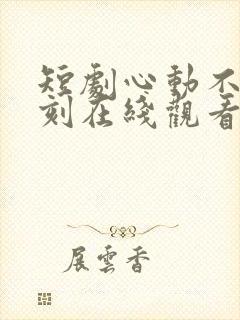 短劇心動不
刻在綫觀看
展雲香